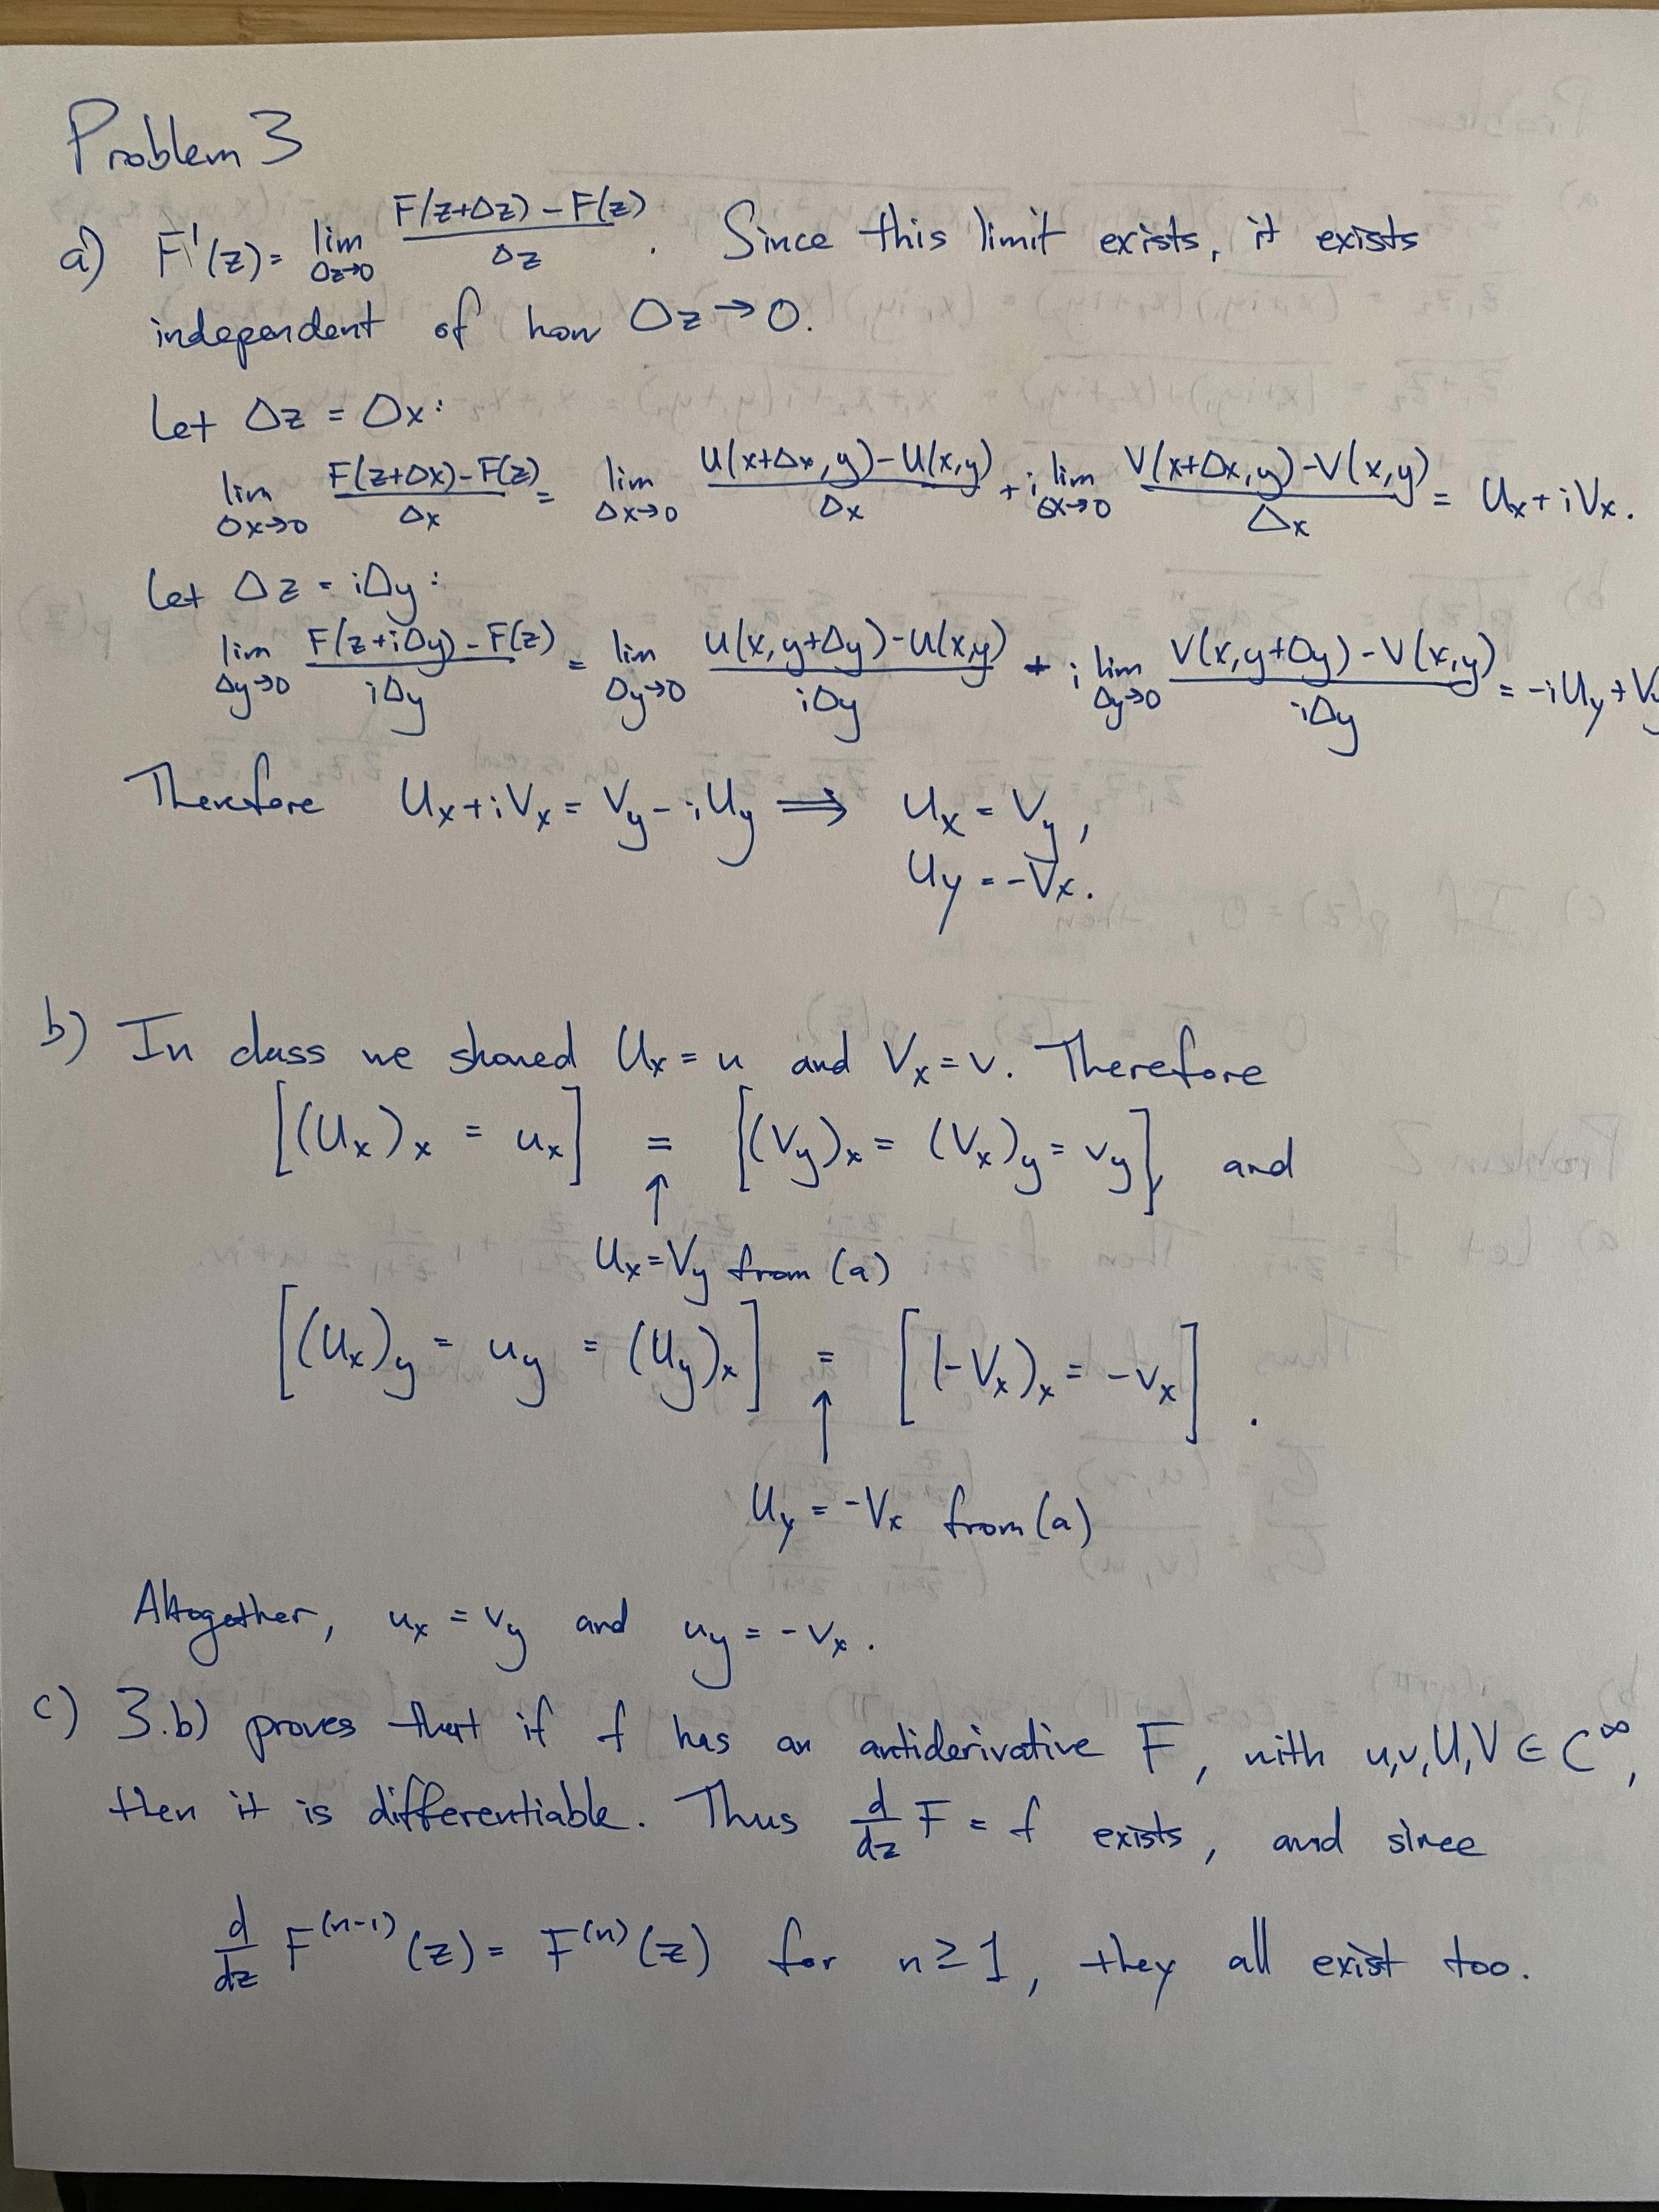 Problem 3
a) F'(z) = lim_{Δz→0} (F(z+Δz) - F(z))/Δz . Since this limit exists, it exists
independent of how Δz → 0.
Let Δz = Δx:
lim_{Δx→0} (F(z+Δx) - F(z))/Δx = lim_{Δx→0} (U(x+Δx, y) - U(x,y))/Δx + i lim_{Δx→0} (V(x+Δx, y) - V(x,y))/Δx = U_x + iV_x.
Let Δz = iΔy:
lim_{Δy→0} (F(z+iΔy) - F(z))/iΔy = lim_{Δy→0} (U(x, y+Δy) - U(x,y))/iΔy + i lim_{Δy→0} (V(x, y+Δy) - V(x,y))/iΔy = -iU_y + V_y
Therefore U_x + iV_x = V_y - iU_y ⟹ U_x = V_y,
U_y = -V_x.
b) In class we showed U_x = u and V_x = v. Therefore
[(U_x)_x = u_x] = [(V_y)_x = (V_x)_y = v_y], and
↑
U_x = V_y from (a)
[(U_x)_y = u_y = (U_y)_x] = [(-V_x)_x = -v_x].
↑
U_y = -V_x from (a)
Altogether, u_x = v_y and u_y = -v_x.
c) 3.b) proves that if f has an antiderivative F, with u,v,U,V ∈ C^∞,
then it is differentiable. Thus d/dz F = f exists, and since
d/dz F^(n-1)(z) = F^(n)(z) for n ≥ 1, they all exist too.